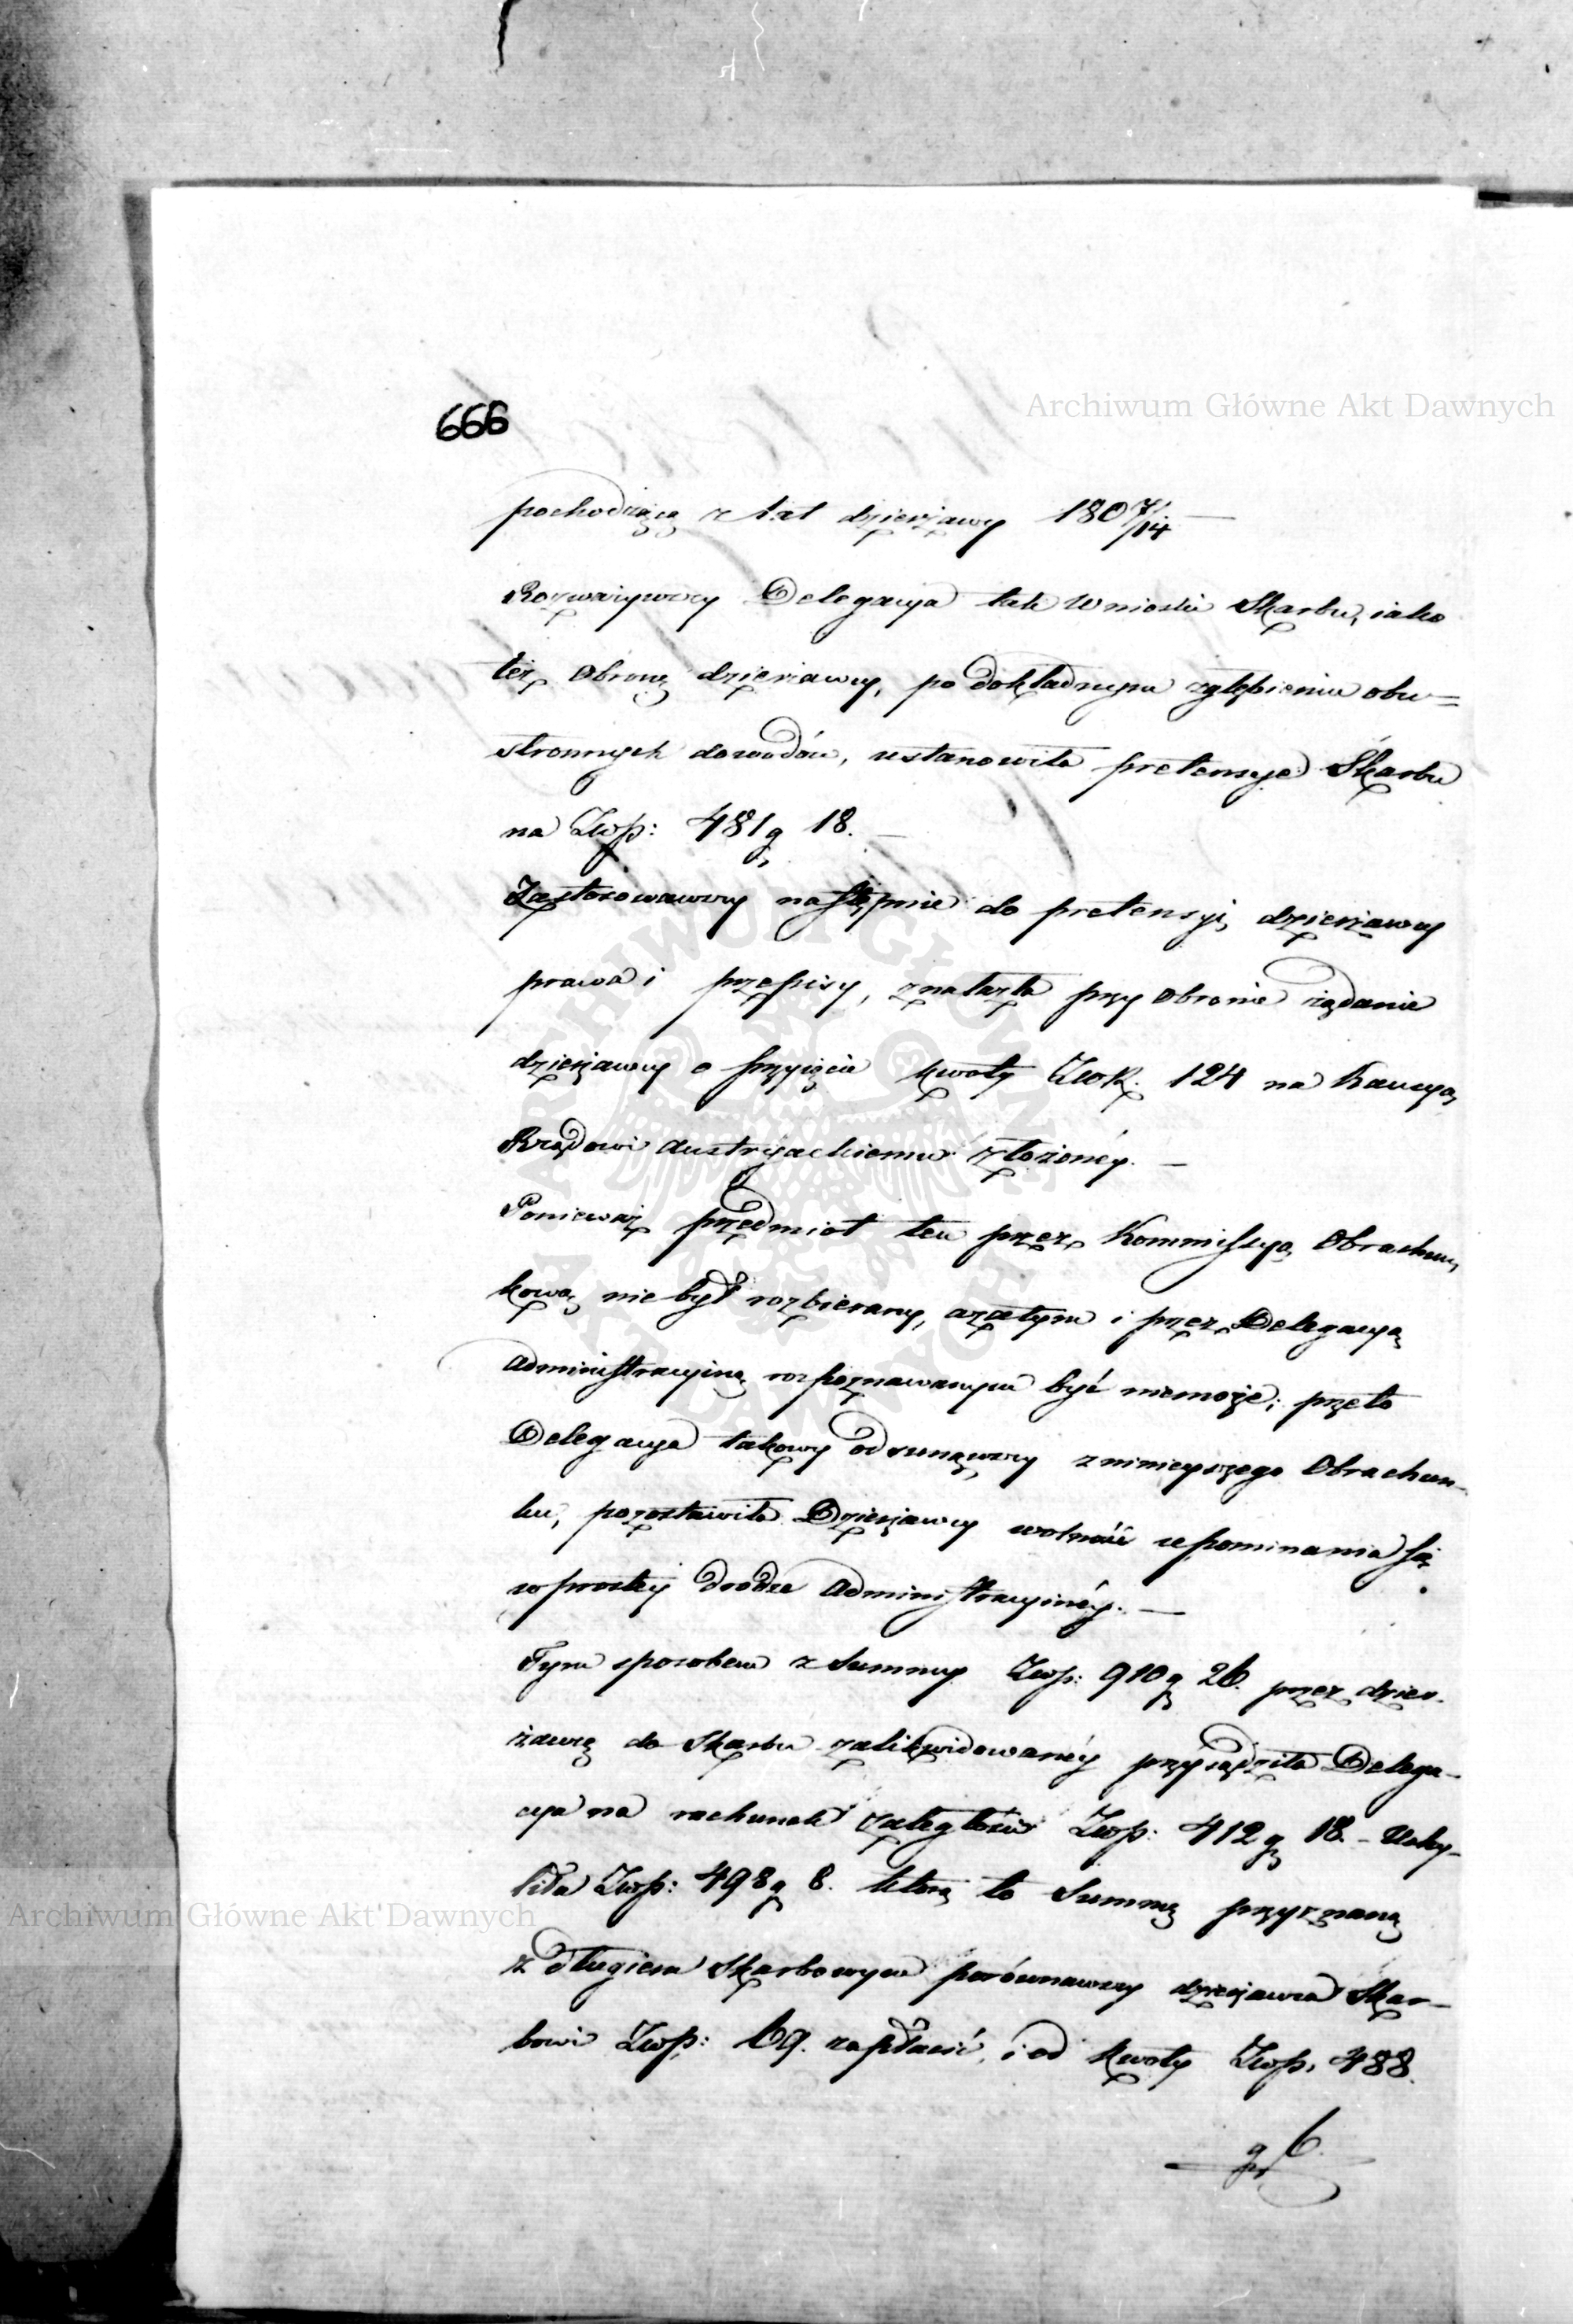 666
Archiwum Główne Akt Dawnych
pochodzącą z lat dzierżawy 1807/14 —
Rozważywszy Delegacya tak wnioski Skarbu, iako
też Obronę dzierżawcy, po dokładnym zgłębieniu obu=
stronnych dowodów, ustanowiła pretensye Skarbu
na Złwp: 481 g 18. —
Zastosowawszy następnie do pretensyi dzierżawcy
prawa i przepisy, znalazła przy Obronie żądanie
dzierżawcy o przyięcie kwoty ZłoR. 124 na Kaucyą
Rządowi Austryackiemu złożonéy. —
Ponieważ przedmiot ten przez Kommissyą Obrachun,
kową nie był rozbierany, azatym i przez Delegacyą
Administracyiną rozpoznawanym być niemoże; przeto
Delegacya takowy odsunąwszy z ninieyszego Obrachun-
ku, pozostawiła Dzierżawcy wolność upominania się
w prostéy drodze Administracyinéy. —
Tym sposobem z Summy Złwp: 910 g 26. przez dzier-
żawcę do Skarbu zalikwidowanéy przysądziła Delega-
cya na rachunek zaległości Złwp: 412 g 18. - Uchy-
liła Złwp: 498 g 8. którą to Summę przyznaną
z długiem Skarbowym porównawszy dzierżawca Skar-
bowi Złwp: 69. zapłacić, i od kwoty Złwp. 488.
g 6.
Archiwum Główne Akt Dawnych
ARCHIWUM GŁÓWNE AKT DAWNYCH